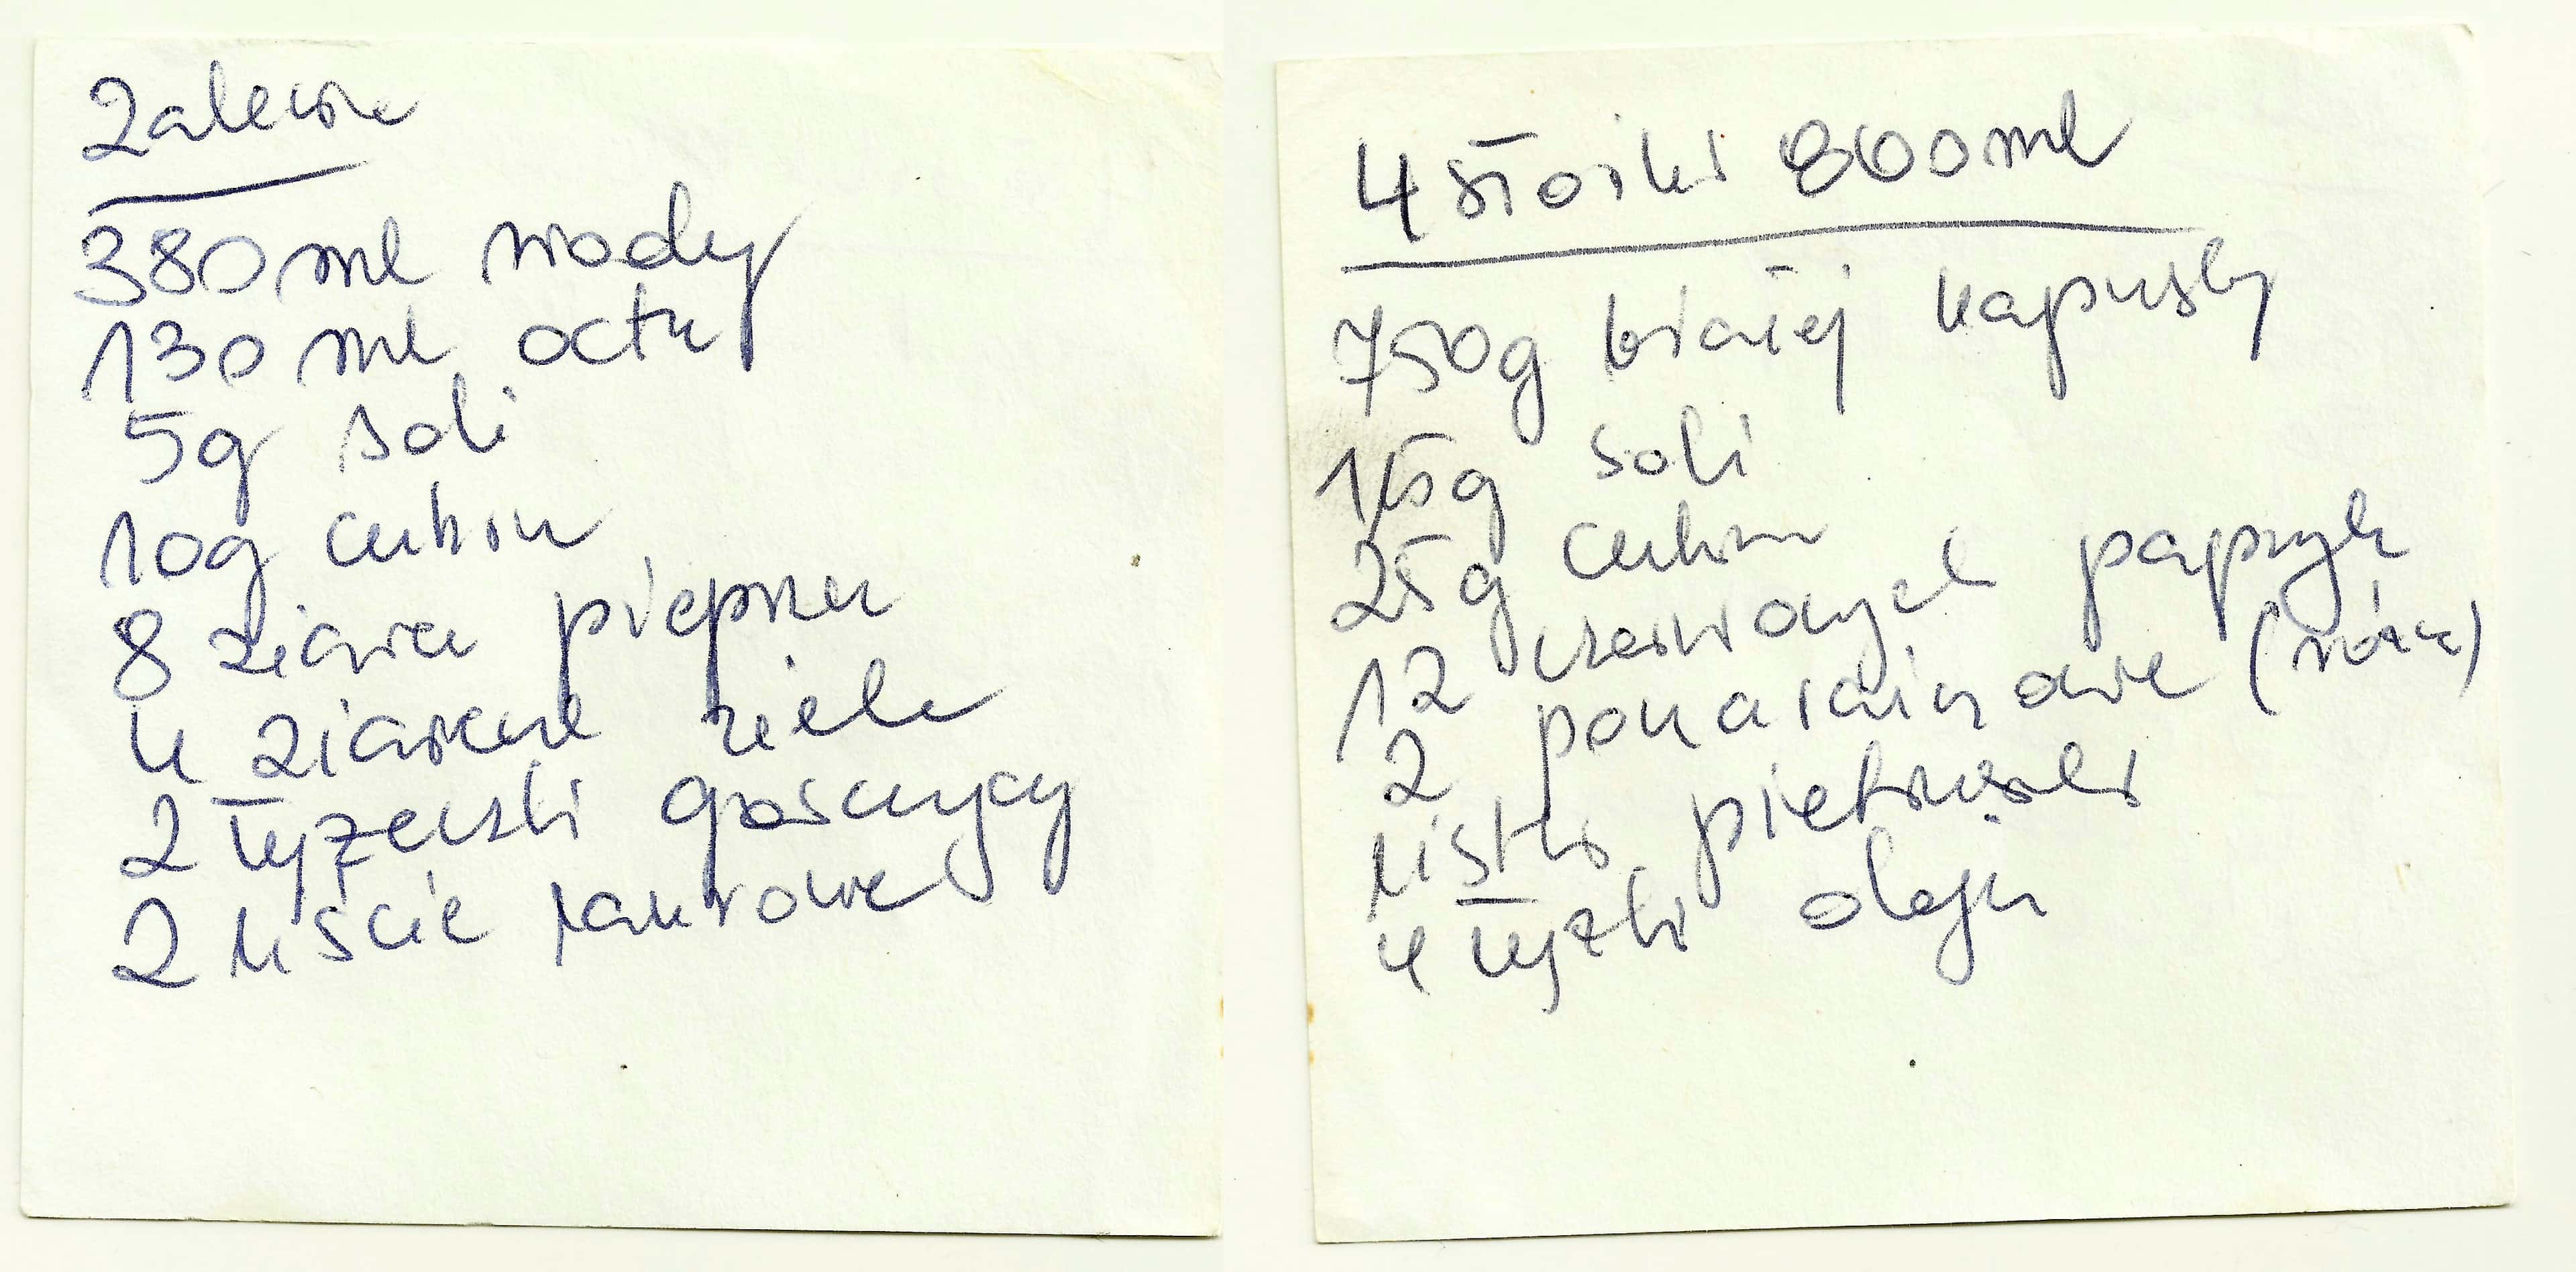 Zalewa
380 ml wody
130 ml octu
5g soli
10g cukru
8 ziaren pieprzu
4 ziarenk ziela
2 łyżeczki gorczycy
2 liście laurowe
4 słoiki 800 ml
750g białej kapusty
15g soli
25g cukru
12 czerwonych papryk
2 pomarańczowe
listki pietruszki
4 łyżki oleju